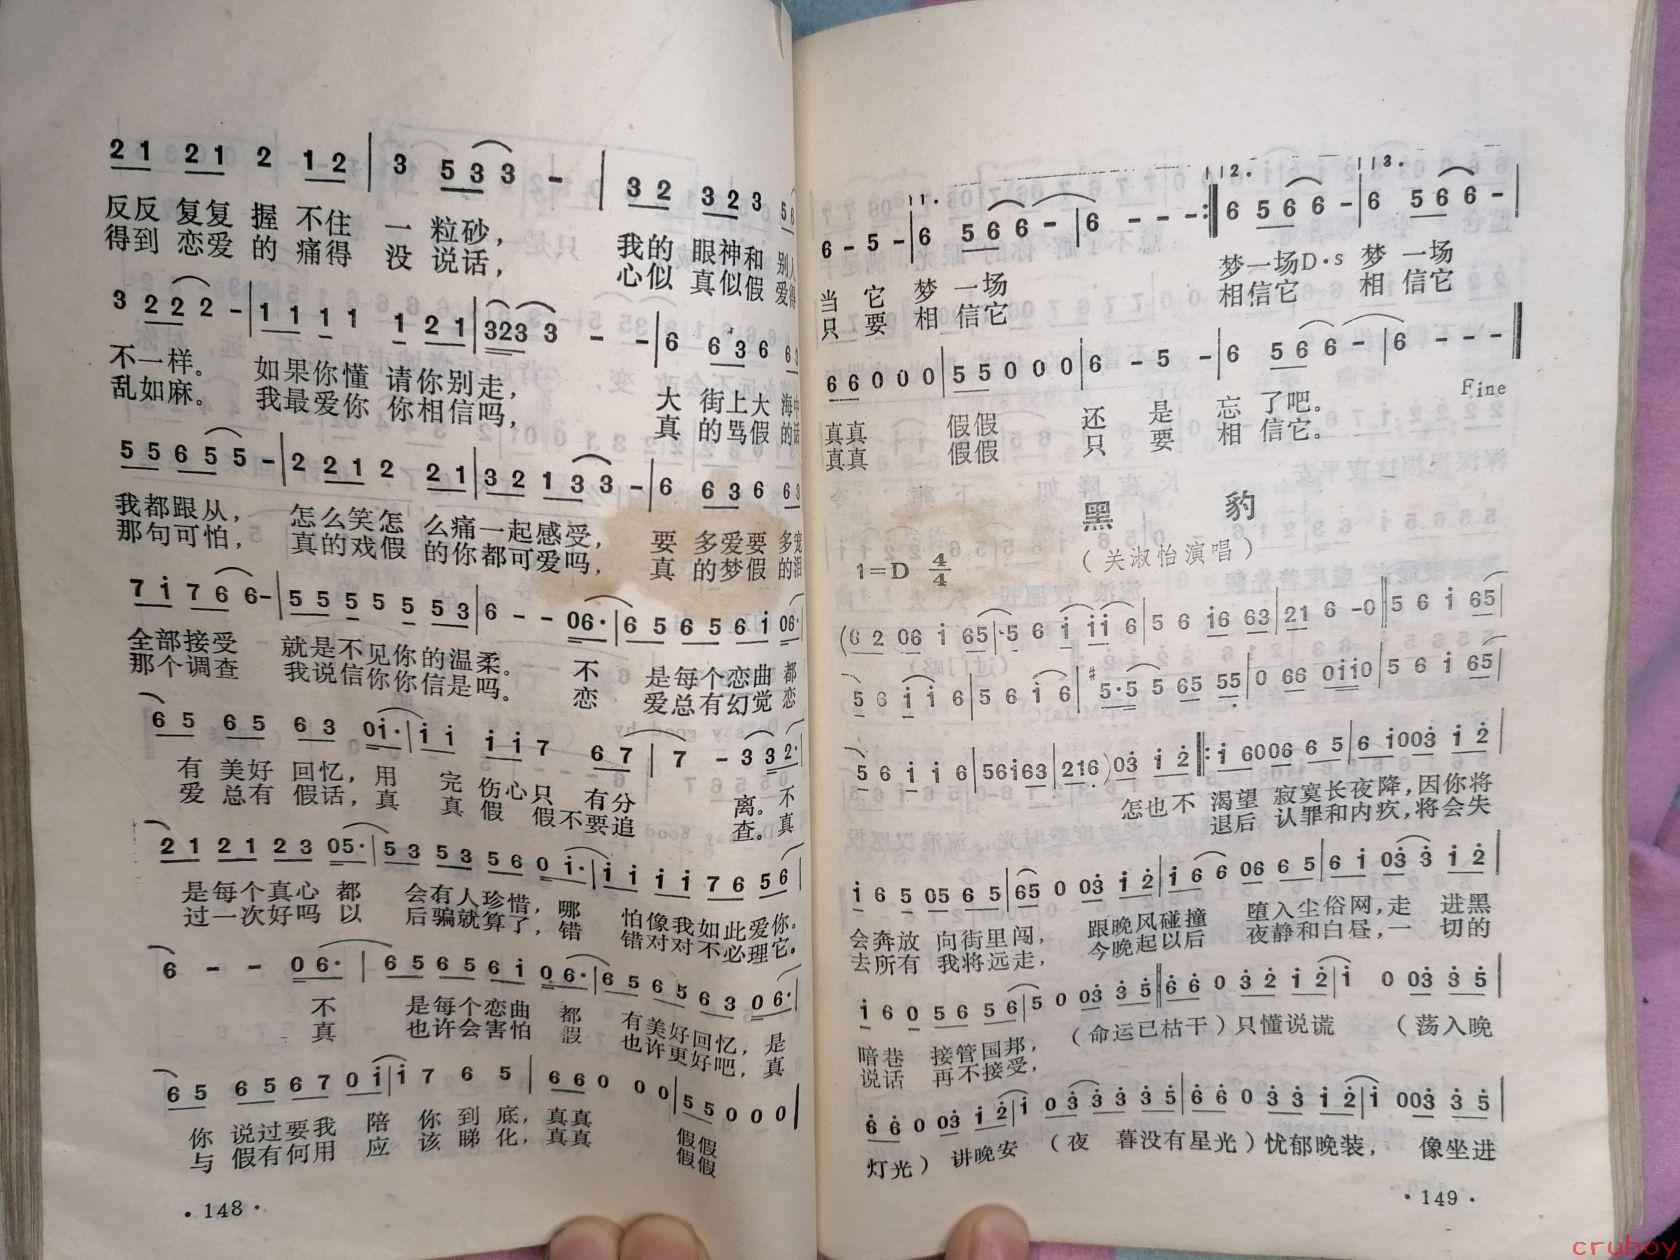 21 21 2 12 | 3 533 - | 32 323 56
反反 复复 握 不住 一 粒砂, 我的 眼神和 别人
得到 恋爱 的 痛得 没 说话, 心似 真似假 爱得
3 2 2 2 2 - | 1 1 1 1 1 21 | 323 3 - - | 6 636 63
不一样。 如果你懂 请你别走, 大 街上大 海中
乱如麻。 我最爱你 你相信吗, 真 的骂假 的话
55655 - | 2 21 2 21 | 32 133 - | 6 636 63
我都跟从, 怎么笑怎 么痛一起感受, 要 多爱要 多宠
那句可怕, 真的戏假 的你都可爱吗, 真 的梦假 的泪
7i766- | 55 5 5 553 | 6 - - 06· | 65656i 06·
全部接受 就是不见你的温柔。 不 是每个恋曲 都
那个调查 我说信你你信是吗。 恋 爱总有幻觉 恋
65 65 63 0i· | ii ii7 67 | 7 - 332·
有 美好 回忆, 用 完 伤心只 有分 离。 不
爱 总有 假话, 真 真 假 假不要追 查。 真
21 21 23 05· | 53 53 56 0i· | ii ii 76 56
是每个真心 都 会有人珍惜, 哪 怕像我如此爱你。
过一次好吗 以 后骗就算了, 错 错对对不必理它。
6 - - 06· | 65656i 06· | 65 65 63 06·
不 是每个恋曲 都 有美好回忆, 是
真 也许会害怕 假 也许更好吧, 真
65 6567 0i | i 7 6 5 | 660 00 | 55000
你 说过要我 陪 你 到 底, 真真 假假
与 假有何用 应 该 睇 化, 真真 假假
·148·
11. 12. 13.
6 - 5 - | 6 566 - | 6 - - - :| 6 566 - | 6 566 - |
当 它 梦 一场 梦一场D·s 梦 一场
只 要 相 信它 相信它 相 信它
66000 | 55000 | 6 - 5 - | 6 566 - | 6 - - -
真真 假假 还 是 忘 了吧。 Fine
真真 假假 只 要 相 信它。
黑 豹
(关淑怡演唱)
1=D 4/4
(62 06 i 65 | ·5 6 i ii 6 | 5 6 i6 63 | 21 6 -0 | 5 6 i 65
5 6 i i 6 | 5 6 i 6 | #5·5 5 65 55 | 0 66 0ii0 | 5 6 i 65
5 6 i i 6 | 56i63 | 216·) 03 i 2 |: i 6006 6 5 | 6 i003 i 2
怎也不 渴望 寂寞长夜降,因你将
退后 认罪和内疚,将会失
i 6 5 05 6 5 | 65 0 03 i2 | i 6 6 06 6 5 | 6 i 03 3 i 2
会奔放 向街里闯, 跟晚风碰撞 堕入尘俗网,走 进黑
去所有 我将远走, 今晚起以后 夜静和白昼,一 切的
i 6 0 5 6 5 6 | 5 0 03 3 5 | 6 6 0 3 2 i 2 | i 0 03 3 5
暗巷 接管国邦, (命运已枯干)只懂说谎 (荡入晚
说话 再不接受,
6 6 0 03 i 2 | i 0 3 3 3 3 5 | 6 6 0 3 3 i 2 | i 003 3 5
灯光) 讲晚安 (夜 暮没有星光)忧郁晚装, 像坐进
·149·
cruboy